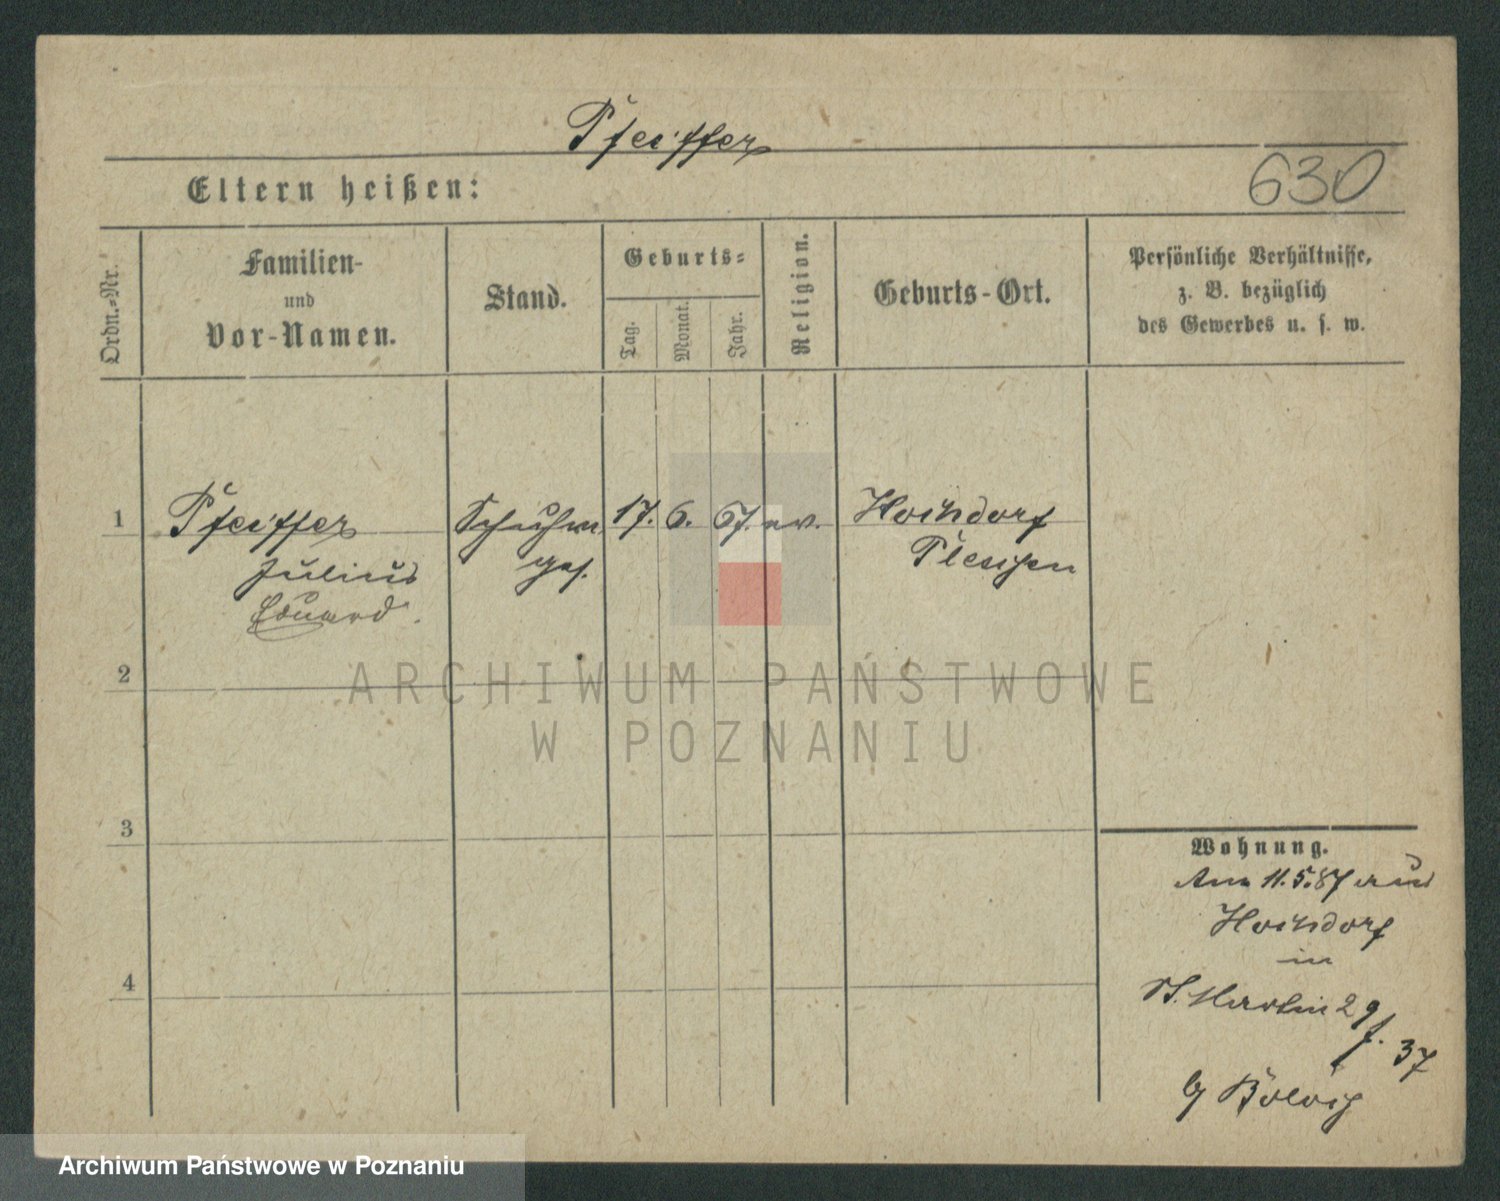 Pfeiffer
630
Eltern heißen:
Ordn.-Nr.
Familien-
und
Vor-Namen.
Stand.
Geburts-
Tag.
Monat.
Jahr.
Religion.
Geburts-Ort.
Persönliche Verhältnisse,
z. B. bezüglich
des Gewerbes u. s. w.
1 Pfeiffer Schuhm. 17. 6. 67. ev.
Julius ges. Pleschen
Eduard.
2
ARCHIWUM PAŃSTWOWE
W POZNANIU
3
4
Wohnung.
Am 11.5.87 aus
in
St. Martin 29
f. 37
Archiwum Państwowe w Poznaniu